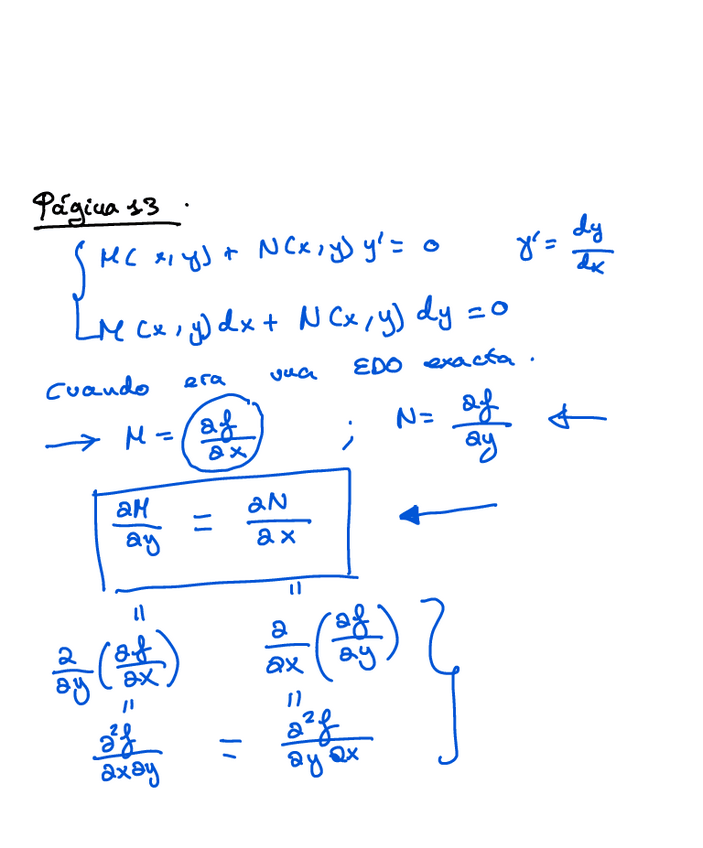 Página 13.
M(x,y) + N(x,y) y' = 0 y' = dy/dx
M(x,y) dx + N(x,y) dy = 0
Cuando era una EDO exacta.
→ M = ∂f/∂x ; N = ∂f/∂y ←
∂M/∂y = ∂N/∂x ←
= =
∂/∂y (∂f/∂x) ∂/∂x (∂f/∂y)
= =
∂²f/∂x∂y = ∂²f/∂y∂x